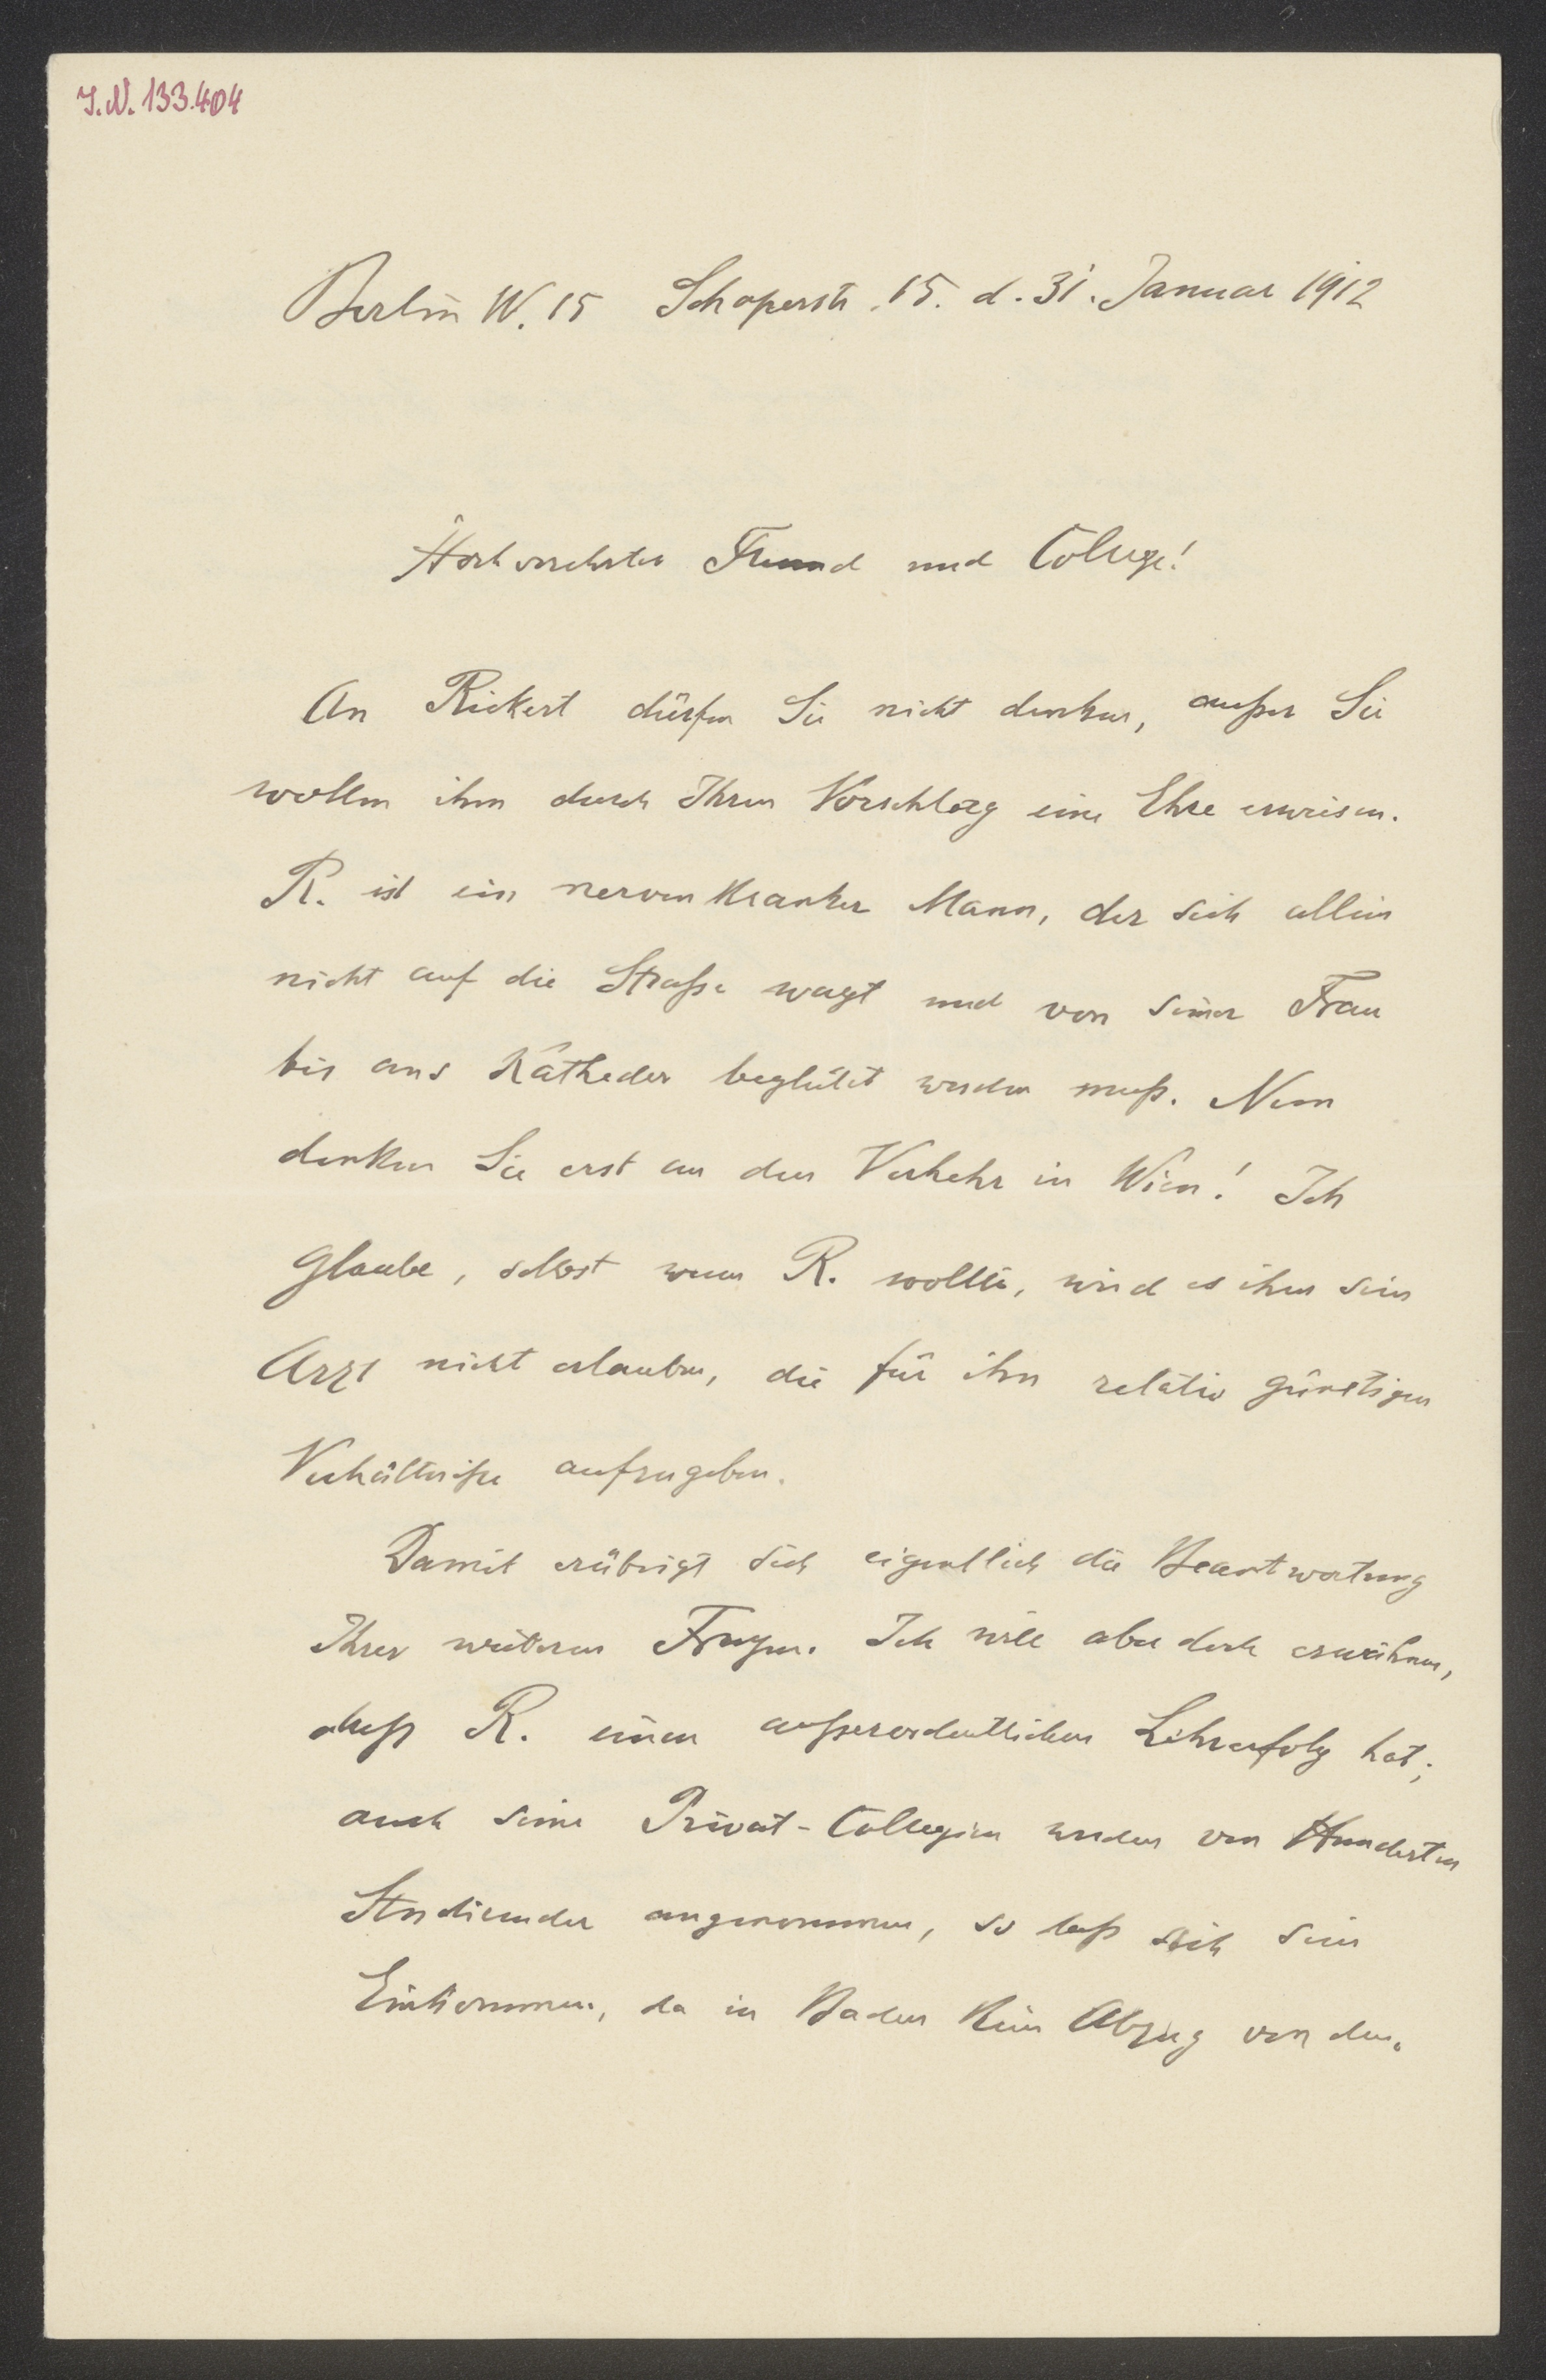 J.N. 133.404
Berlin W. 15 Schaperstr. 15. d. 31. Januar 1912
Hochverehrter Freund und College!
An Rickert dürfen Sie nicht denken, außer Sie
wollen ihm durch Ihren Vorschlag eine Ehre erweisen.
R. ist ein nervenkranker Mann, der sich allein
nicht auf die Straße wagt und von seiner Frau
bis ans Katheder begleitet werden muß. Nun
denken Sie erst an den Verkehr in Wien! Ich
glaube, selbst wenn R. wollte, wird es ihm sein
Arzt nicht erlauben, die für ihn relativ günstigen
Verhältniße aufzugeben.
Damit erübrigt sich eigentlich die Beantwortung
Ihrer weiteren Fragen. Ich will aber doch erwähnen,
daß R. einen außerordentlichen Lehrerfolg hat;
auch seine Privat-Collegien werden von Hunderten
Studierender angenommen, so daß sich sein
Einkommen, da in Baden kein Abzug von den